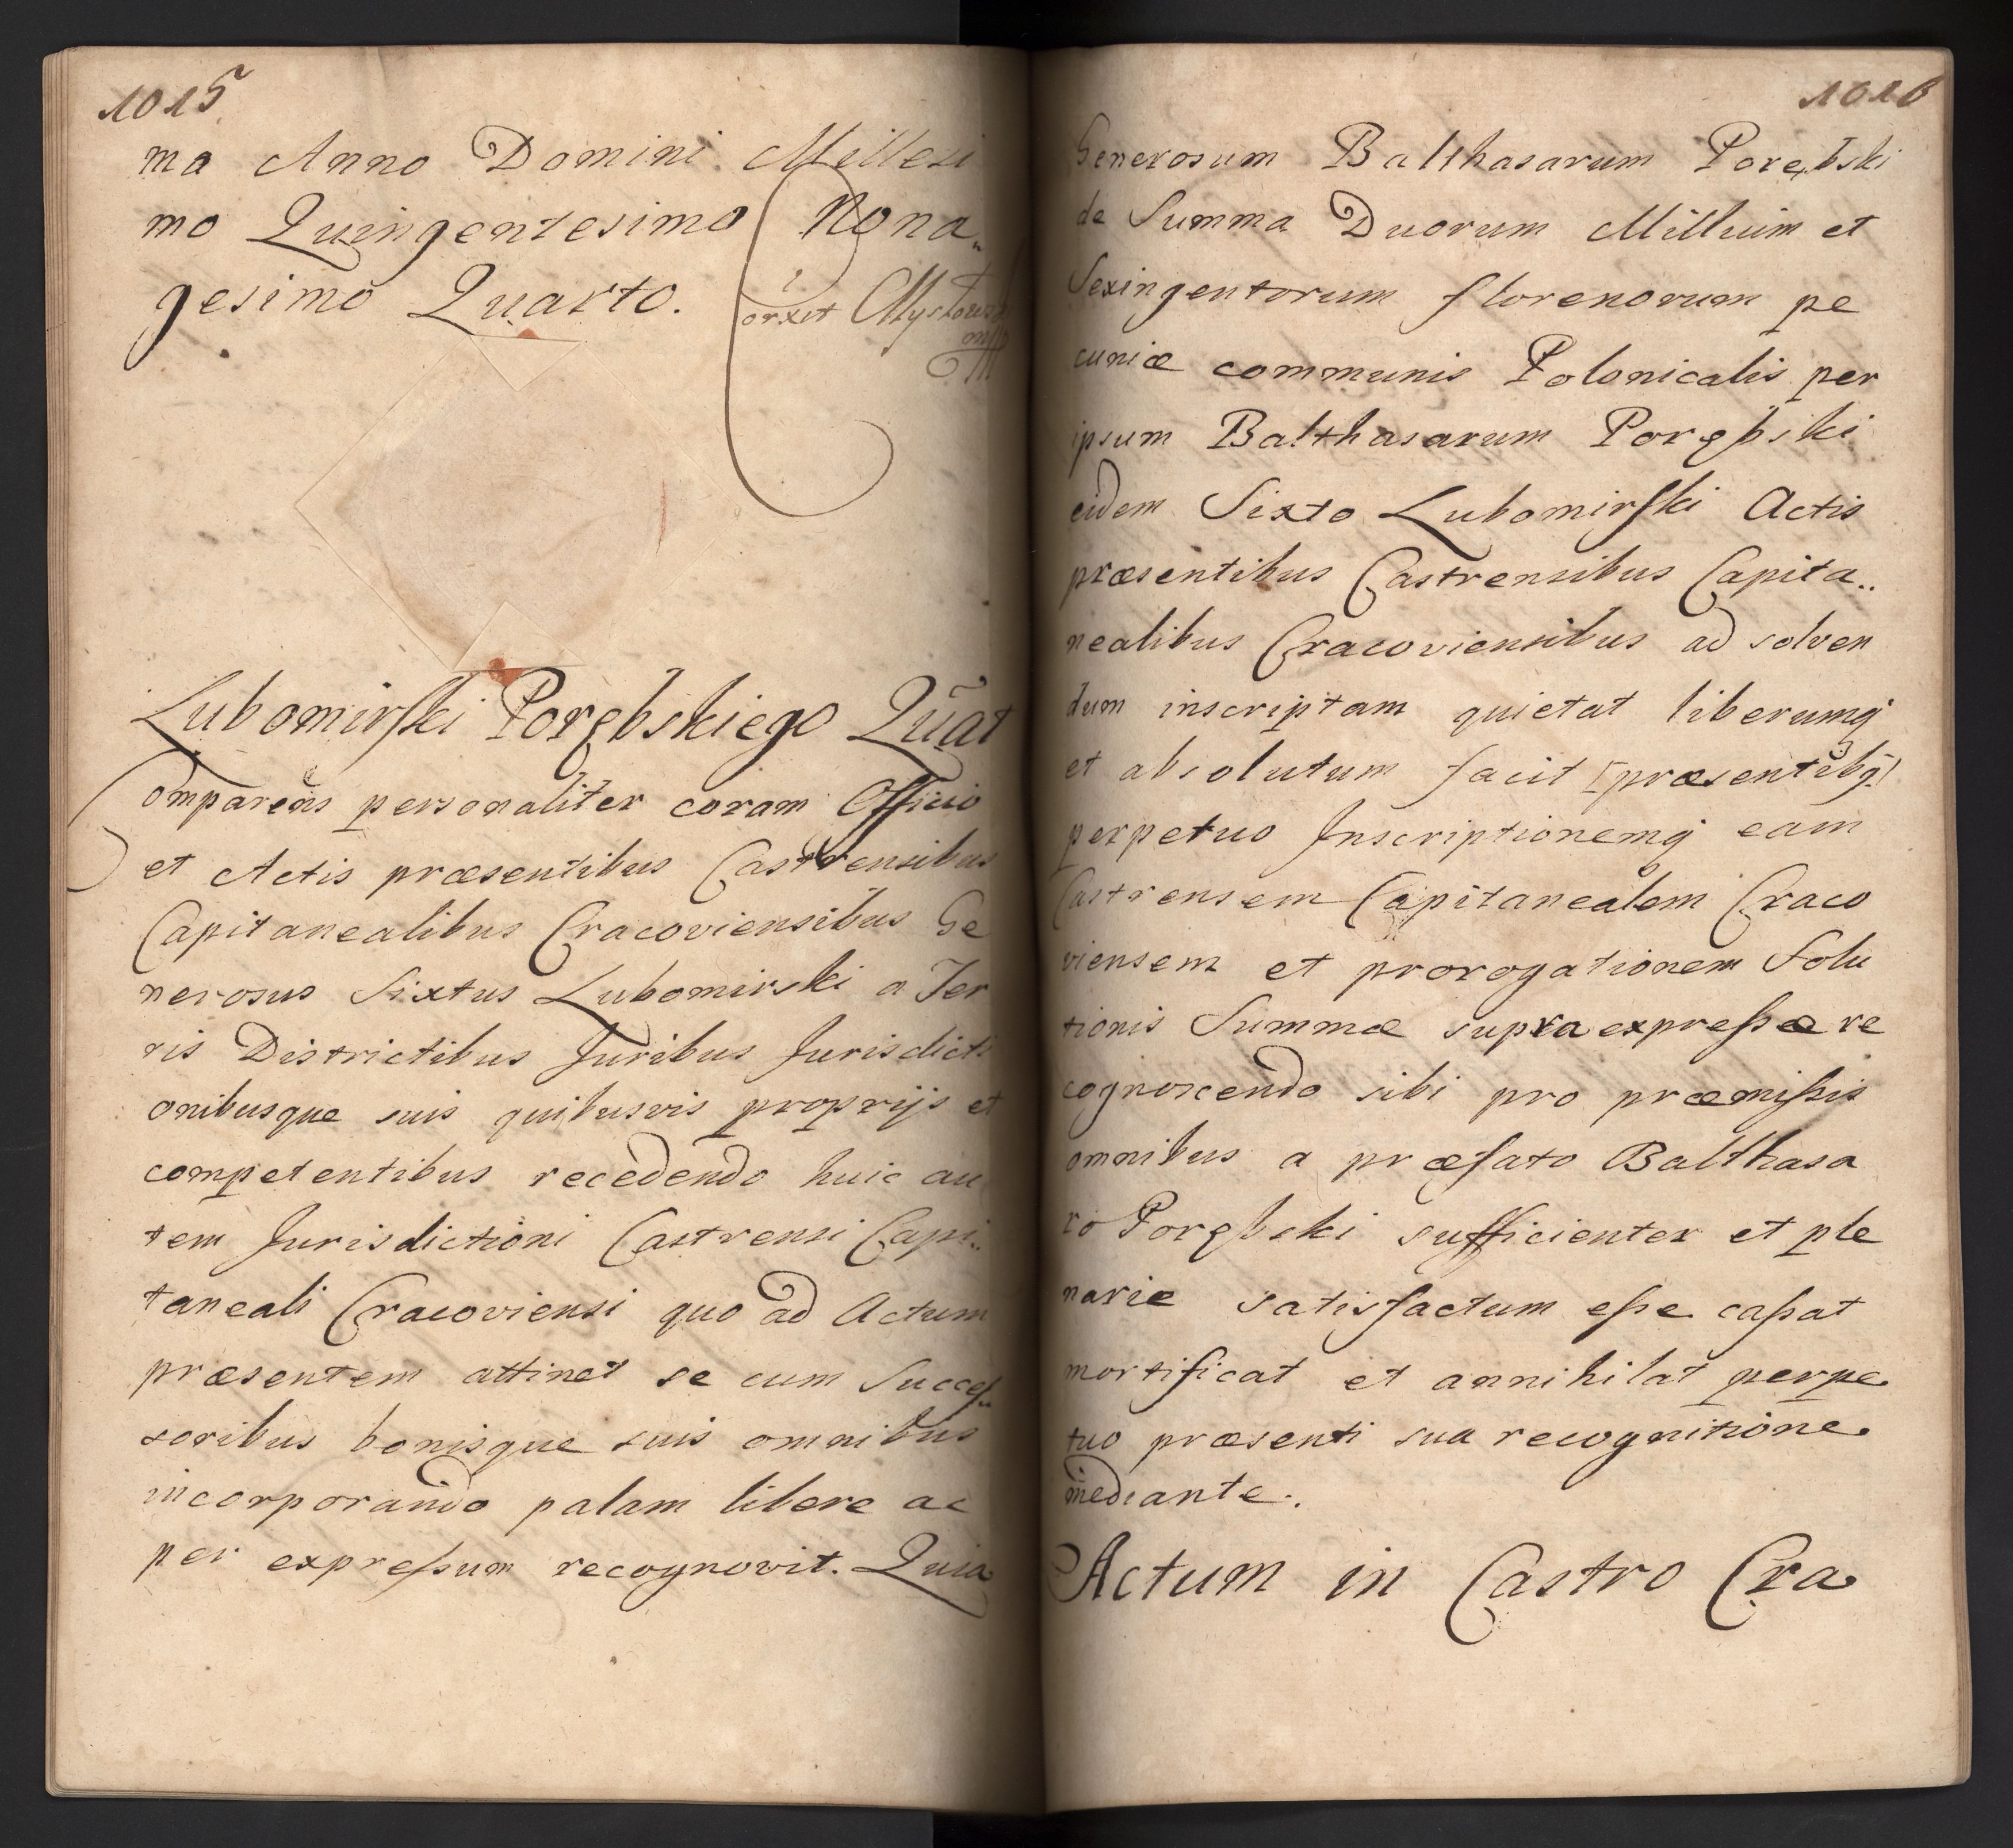 1015
ma Anno Domini Millesi
mo Quingentesimo Nona„
gesimo Quarto.
Lubomirski Porębskiego Qũat
Comparens personaliter coram Officio
et Actis præsentibus Castrensibus
Capitanealibus Cracoviensibus Ge
nerosus Sixtus Lubomirski a Ter
ris Districtibus Juribus Jurisdicti
onibusque suis quibusvis proprijs et
competentibus recedendo huic au
tem Jurisdictioni Castrensi Capi„
taneali Cracoviensi quo ad Actum
præsentem attinet se cum Succes„
soribus bonisque suis omnibus
incorporando palam libere ac
per expressum recognovit. Quia
1016
Generosum Balthasarum Porębski
de Summa Duorum Millium et
Sexingentorum florenorum pe
cuniæ communis Polonicalis per
ipsum Balthasarum Porębski
eidem Sixto Lubomirski Actis
præsentibus Castrensibus Capita„
nealibus Cracoviensibus ad solven
dum inscriptam quietat liberumq̃
et absolutum facit [præsentibq̃]
perpetuo Inscriptionemq̃ eam
Castrensem Capitanealem Craco
viensem et prorogationem Solu
tionis Summæ supra expressæ re
cognoscendo sibi pro præmissis
omnibus a præfato Balthasa
ro Porębski sufficienter et ple
narie satisfactum esse cassat
mortificat et annihilat perpe
tuo præsenti sua recognitione
mediante.
Actum in Castro Cra